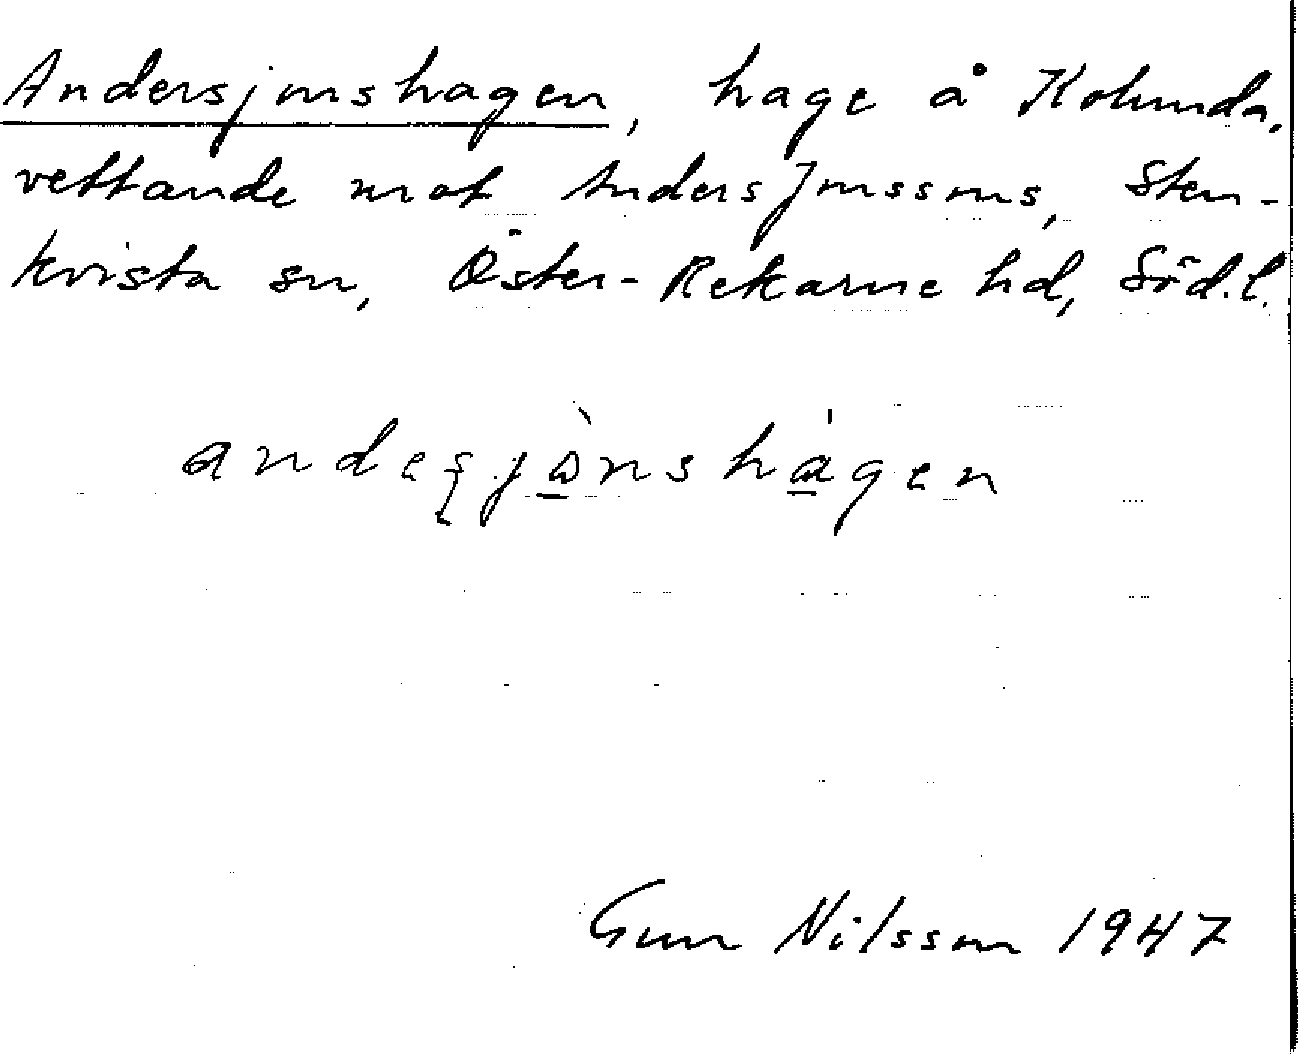 Andersjonshagen, hage å Kolunda,
vettande mot AndersJonssons, Sten-
kvista sn, Öster-Rekarne hd, Söd.l.
andeʂjònshágen
Gun Nilsson 1947